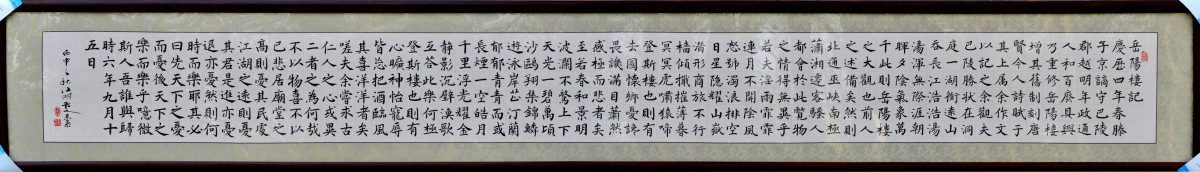 岳陽樓記
慶歷四年春滕
子京謫守巴陵
郡越明年政通
人和百廢具興
乃重修岳陽樓
增其舊制刻唐
賢今人詩賦于
其上屬余作文
以記之余觀夫
巴陵勝狀在洞
庭一湖銜遠山
吞長江浩浩湯
湯渾無際涯朝
暉夕陰氣象萬
千此則岳陽樓
之大觀也前人
之述備矣然則
北通巫峽南極
瀟湘遷客騷人
都會於此覽物
之情得無異乎
若夫淫雨霏霏
連月不開陰風
怒號濁浪排空
日星隱耀山嶽
潛形商旅不行
檣傾楫摧薄暮
冥冥虎嘯猿啼
登斯樓也則有
去國懷鄉憂讒
畏譏滿目蕭然
感極而悲者矣
至若春和景明
波瀾不驚上下
天光一碧萬頃
沙鷗翔集錦鱗
遊泳岸芷汀蘭
郁郁青青而或
長煙一空皓月
千里浮光耀金
靜影沉璧漁歌
互答此樂何極
登斯樓也則有
心曠神怡寵辱
皆忘把酒臨風
其喜洋洋者矣
嗟夫余嘗求古
仁人之心或異
二者之為何哉
不以物喜不以
己悲居廟堂之
高則憂其民處
江湖之遠則憂
其君是進亦憂
退亦憂然則何
時而樂耶其必
曰先天下之憂
而憂後天下之
樂而樂乎噫微
斯人吾誰與歸
時六年九月十
五日